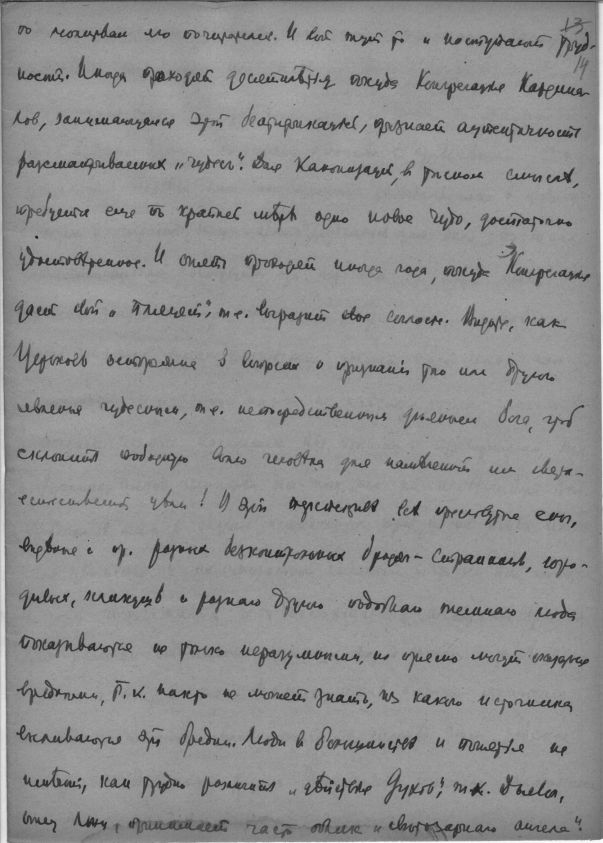 13
14
по молитвам по . И вот тут то и наступают труд-
ности. Иногда проходят десятилетия, покуда Конгрегация Кардина-
лов, занимающаяся этой беатификацией, признает аутентичность
рассматриваемых „чудес“. Для Канонизации, в тесном смысле,
требуется еще по крайней мѣрѣ одно новое чудо, достаточно
удостовѣренное. И опять проходят иногда года, покуда Конгрегация
даст свой „Плацет“, т.е. выразит свое согласие. Видите, как
Церковь осторожна в вопросах о признании того или другого
явления чудесным, т.е. непосредственным деянием Бога, чтоб
склонить свободную волю человека для намѣченной им сверх-
естественной цѣли! При этом всѣ пресловутые сны,
видѣния и пр. разных безконтрольных бродяг-странников, юро-
дивых, кликуш и разного другого подобного темного люда
оказываются не только неразумными, но прямо могут оказаться
вредными, т.к. никто не может знать, из какого источника
вытекают эти бредни. Люди в большинствѣ и понятия не
имѣют, как трудно различить „дѣйствие Духов“, т.к. Дьявол,
отец Лжи, принимает часто облик „свѣтозарного ангела“.